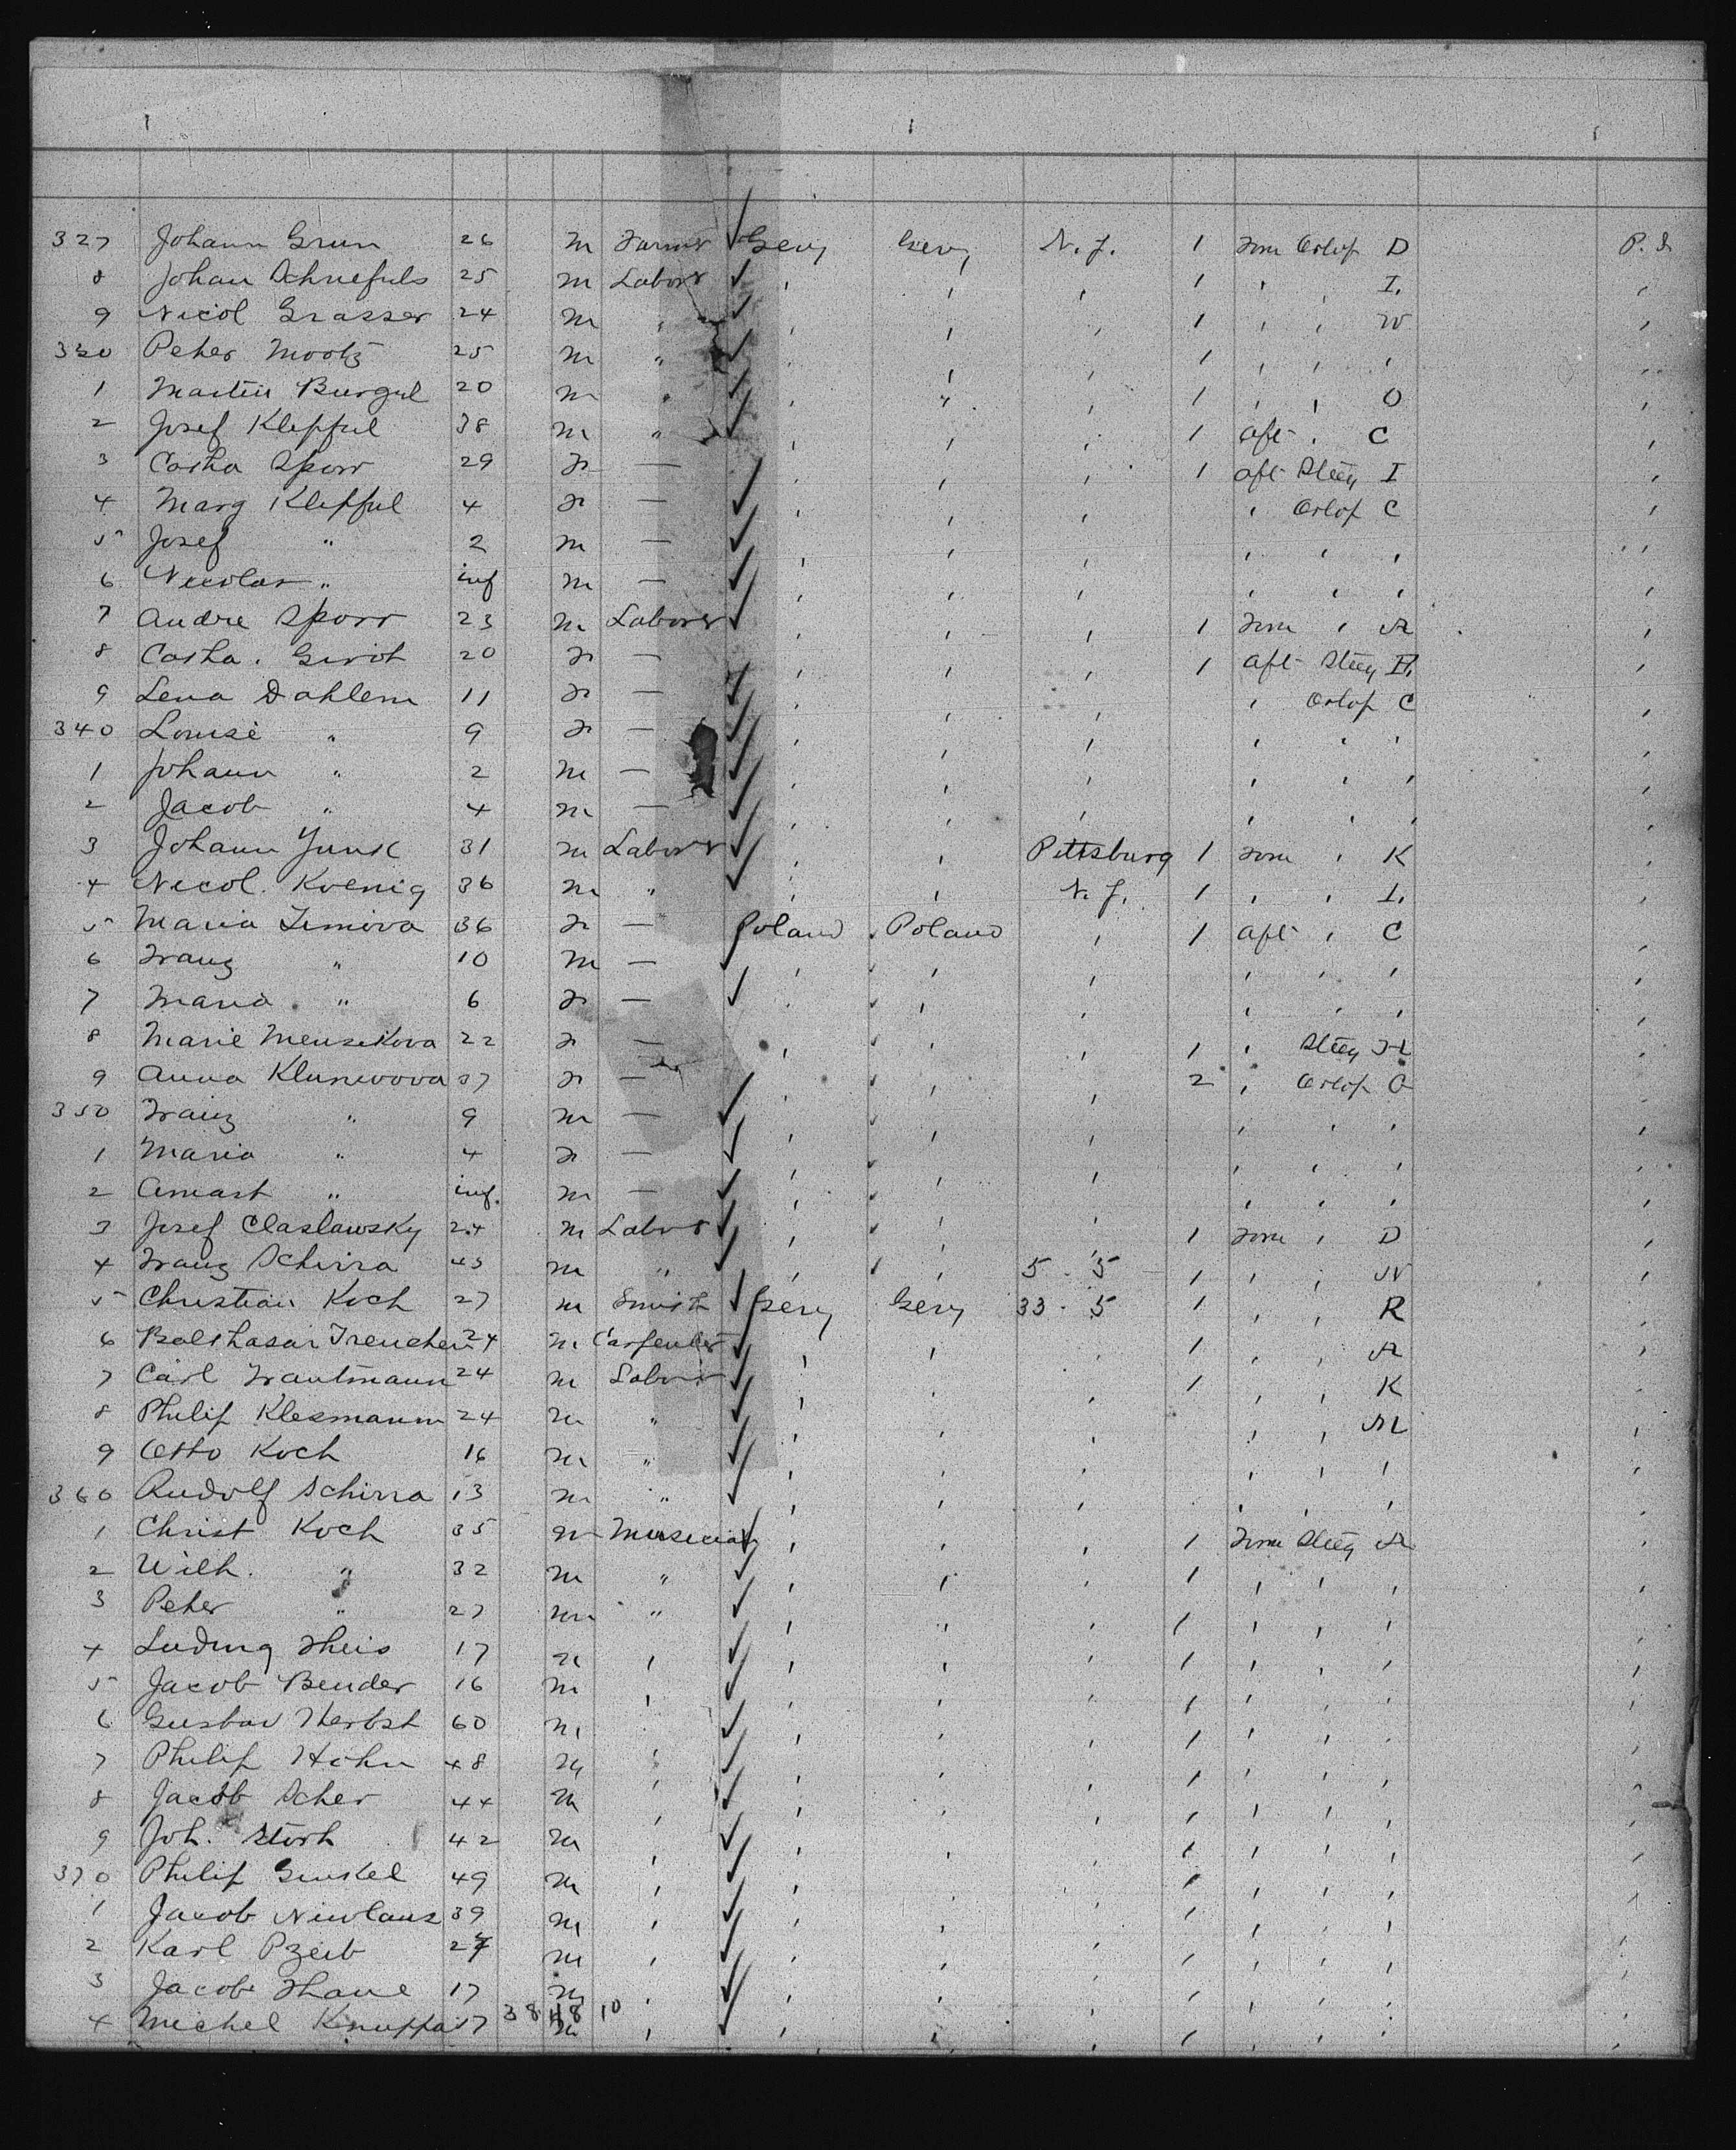 327 Johann Grun 26 m Farmer Gery Gery N.J. 1 Form Orlop D P.S.
8 Johan 25 m Labor ✓ ' ' ' 1 ' ' I. '
9 Nicol Grasser 24 m ' ✓ ' ' ' 1 ' ' W '
330 Peter Mootz 25 m " ✓ ' ' ' 1 ' ' ' '
1 Martin Burgul 20 m " ✓ ' " ' 1 ' ' O '
2 Josef Klepful 38 m " ✓ ' ' ' 1 aft ' C '
3 Catha Sporr 29 f — ' ' ' 1 aft Steeg I '
4 Marg Klepful 4 f — ✓ ' ' ' ' Orlop C '
5 Josef " 2 m — ✓ ' ' ' ' ' '
6 Nicolas " inf m — ✓ ' ' ' ' ' '
7 Andre Sporr 23 m Laborer ✓ ' ' ' 1 Form ' A '
8 Catha. Girot 20 f — ' ' ' 1 aft Steeg '
9 Lena Dahlem 11 f — ✓ ' ' ' ' Orlop C '
340 Louise " 9 f — ✓ ' ' ' ' ' ' '
1 Johann " 2 m — ✓ ' ' ' ' ' ' '
2 Jacob " 4 m — ✓ ' ' ' ' ' ' '
3 Johann Junk 31 m Labor ✓ ' ' Pittsburg 1 Form ' K '
4 Nicol. Koenig 36 m " ✓ ' ' N.J. 1 ' ' I. '
5 Maria 36 f — Poland Poland ' 1 aft ' C '
6 Franz " 10 m — ✓ ' ' ' ' ' ' '
7 Maria " 6 f — ✓ ' ' ' ' ' ' '
8 Marie 22 f — ' ' ' 1 ' Steeg H '
9 Anna 37 f — ' ' ' 2 ' Orlop '
350 Franz " 9 m — ✓ ' ' ' ' ' ' '
1 Maria " 4 f — ✓ ' ' ' ' ' ' '
2 " inf. m — ✓ ' ' ' ' ' ' '
3 Josef Claslawsky 24 m Labor ✓ ' ' ' 1 Form ' D '
4 Franz Schirra 43 m " ✓ ' ' 5 - 5 - 1 ' ' N '
5 Christian Koch 27 m Smith ✓ Gery Gery 33 - 5 1 ' ' R '
6 Balthasar Treuchen 24 m Carpenter ✓ ' ' ' 1 ' ' A '
7 Carl Trautmann 24 m Labor ✓ ' ' ' 1 ' ' K '
8 Philip Klesmann 24 m " ✓ ' ' ' ' ' M '
9 Otto Koch 16 m " ✓ ' ' ' ' ' ' '
360 Rudolf Schirra 13 m " ✓ ' ' ' ' ' ' '
1 Christ Koch 35 m Musician ✓ ' ' ' 1 Form Steeg A '
2 Wilh. " 32 m " ✓ ' ' ' 1 ' ' ' '
3 Peter " 27 m " ✓ ' ' ' 1 ' ' ' '
4 Ludwig Theis 17 m ' ✓ ' ' ' 1 ' ' ' '
5 Jacob Bender 16 m ' ✓ ' ' ' 1 ' ' ' '
6 Gustav Herbst 60 m ' ✓ ' ' ' 1 ' ' ' '
7 Philip Hohn 48 m ' ✓ ' ' ' 1 ' ' ' '
8 Jacob Scher 44 m ' ✓ ' ' ' 1 ' ' ' '
9 Joh. 42 m ' ✓ ' ' ' 1 ' ' ' '
370 Philip Ginkel 49 m ' ✓ ' ' ' 1 ' ' ' '
1 Jacob 39 m ' ✓ ' ' ' 1 ' ' ' '
2 Karl m ' ✓ ' ' ' 1 ' ' ' '
3 Jacob 17 m ' ✓ ' ' ' 1 ' ' ' '
4 Michel m ' ✓ ' ' ' 1 ' ' ' '
38 48 10